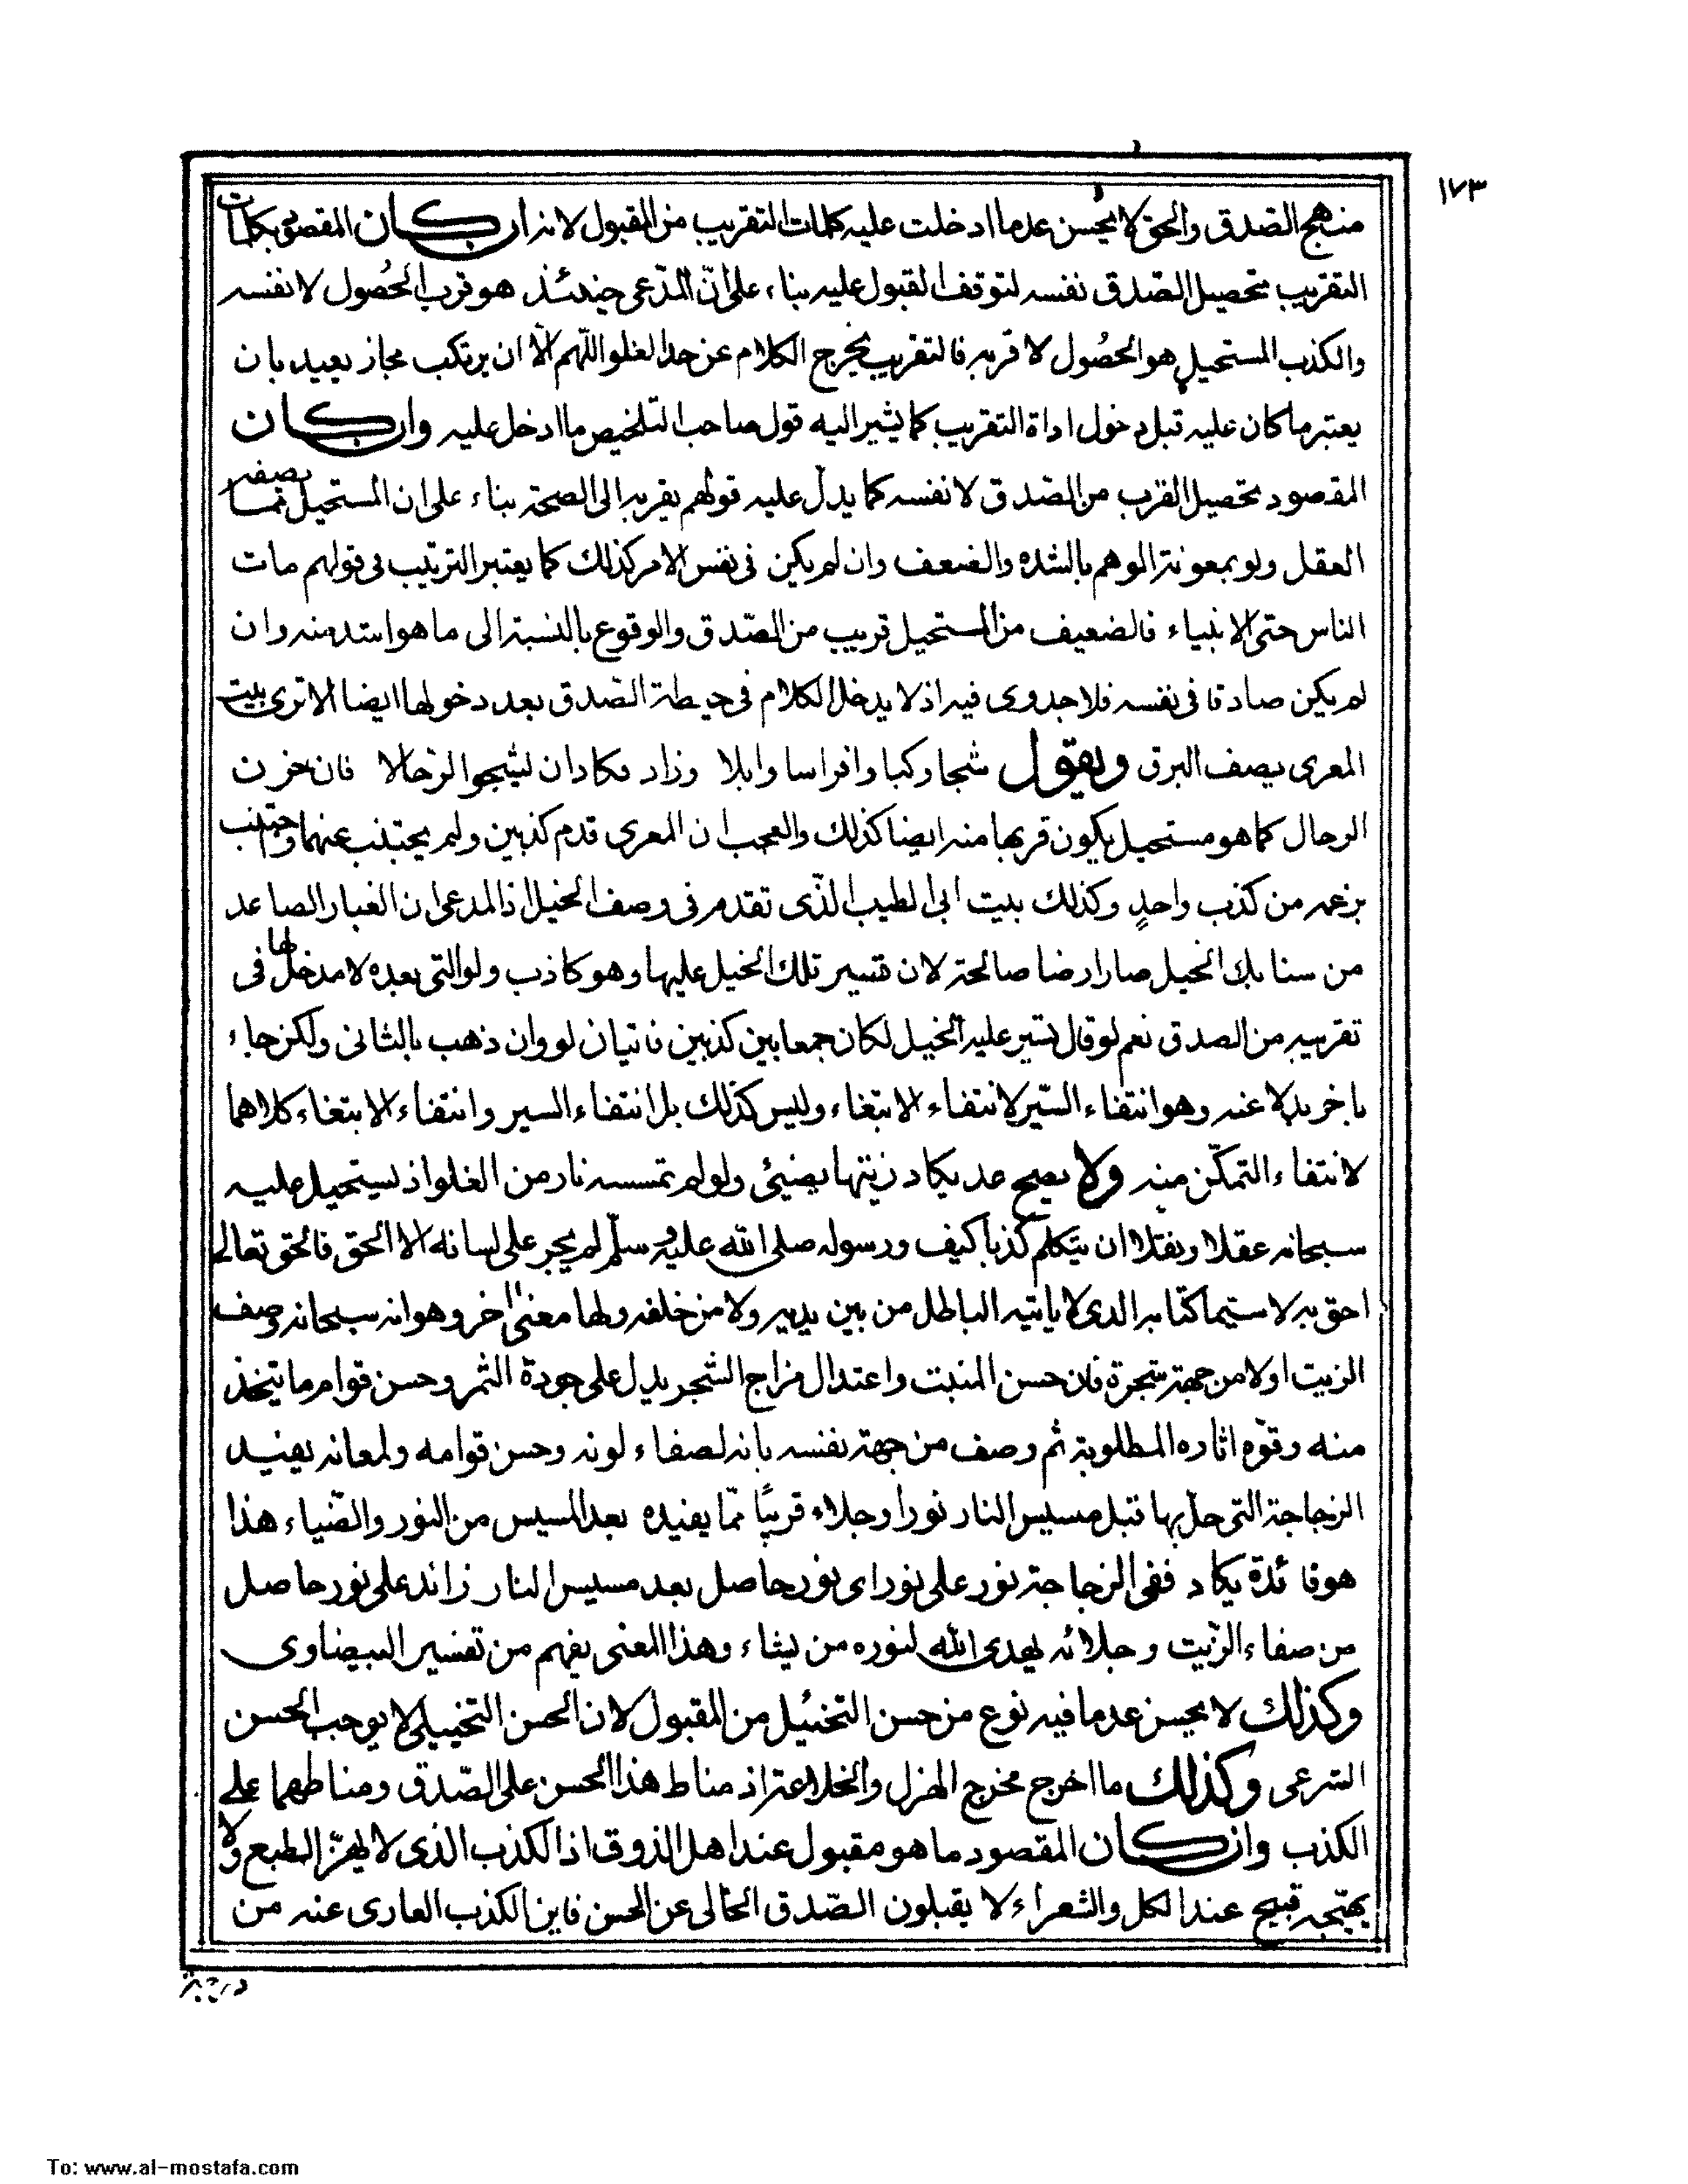 ١٧٣
منهج الصدق والحق لا يحسن عدما ادخلت عليه كلمات التقريب من المقبول لانه ان كان المقصود بكلمات
التقريب تحصيل الصدق نفسه لتوقف القبول عليه بناء على ان المدعى حينئذ هو قرب الحصول لا نفسه
والكذب المستحيل هو الحصول لا قربه فالتقريب يخرج الكلام عن حد الغلو اللهم الا ان يرتكب مجاز بعيد بان
يعتبر ما كان عليه قبل دخول اداة التقريب كما يشير اليه قول صاحب التلخيص ما ادخل عليه وان كان
المقصود تحصيل القرب من الصدق لا نفسه كما يدل عليه قولهم يقربه الى الصحة بناء على ان المستحيل مما يصفه
العقل ولو بمعونة الوهم بالشده والضعف وان لم يكن فى نفس الامر كذلك كما يعتبر الترتيب فى قولهم مات
الناس حتى الانبياء فالضعيف من المستحيل قريب من الصدق والوقوع بالنسبة الى ما هو اشد منه وان
لم يكن صادقا فى نفسه فلا جدوى فيه اذ لا يدخل الكلام فى حيطة الصدق بعد دخولها ايضا الا ترى بيت
المعرى يصف البرق ويقول شجا ركبا وافراسا وابلا وزاد فكاد ان يشجو الرحالا فان حزن
الرحال كما هو مستحيل يكون قربها منه ايضا كذلك والعجب ان المعرى قدم كذبين ولم يجتنب عنهما واجتنب
بزعمه من كذب واحد وكذلك بيت ابى الطيب الذى تقدم فى وصف الخيل اذ المدعى ان الغبار الصاعد
من سنابك الخيل صار ارضا صالحة لان تسير تلك الخيل عليها وهو كاذب ولو التى بعده لا مدخل لها فى
تقريبه من الصدق نعم لو قال تسير عليه الخيل لكان جمعا بين كذبين فاتيان لو وان ذهب بالثانى ولكن جاء
باخر بدلا عنه وهو انتفاء السير لانتفاء الابتغاء وليس كذلك بل انتفاء السير وانتفاء الابتغاء كلاهما
لانتفاء التمكن منه ولا يصح عد يكاد زيتها يضيئ ولو لم تمسسه نار من الغلو اذ يستحيل عليه
سبحانه عقلا ونقلا ان يتكلم كذبا كيف ورسوله صلى الله عليه وسلم لم يجر على لسانه الا الحق فالحق تعالى
احق به لا سيما كتابه الذى لا ياتيه الباطل من بين يديه ولا من خلفه ولها معنى اخر وهو انه سبحانه وصف
الزيت اولا من جهة شجرة فان حسن المنبت واعتدال مزاج الشجر يدل على جودة الثمر وحسن قوام ما يتخذ
منه وقوة اثاره المطلوبة ثم وصف من جهة نفسه بانه لصفاء لونه وحسن قوامه ولمعانه يفيد
الزجاجة التى حل بها قبل مسيس النار نورا وجلاء قريبا مما يفيده بعد المسيس من النور والضياء هذا
هو فائدة يكاد ففى الزجاجة نور على نور اى نور حاصل بعد مسيس النار زائد على نور حاصل
من صفاء الزيت وجلائه يهدى الله لنوره من يشاء وهذا المعنى يفهم من تفسير البيضاوى
وكذلك لا يحسن عد ما فيه نوع من حسن التخييل من المقبول لان الحسن التخييلى لا يوجب الحسن
الشرعى وكذلك ما اخرج مخرج الهزل والخلاعة اذ مناط هذا الحسن على الصدق ومناطهما على
الكذب وان كان المقصود ما هو مقبول عند اهل الذوق اذ الكذب الذى لا يهز الطبع ولا
يهيجه قبيح عند الكل والشعراء لا يقبلون الصدق الخالى عن الحسن فاين الكذب العارى عنه من
To: www.al-mostafa.com